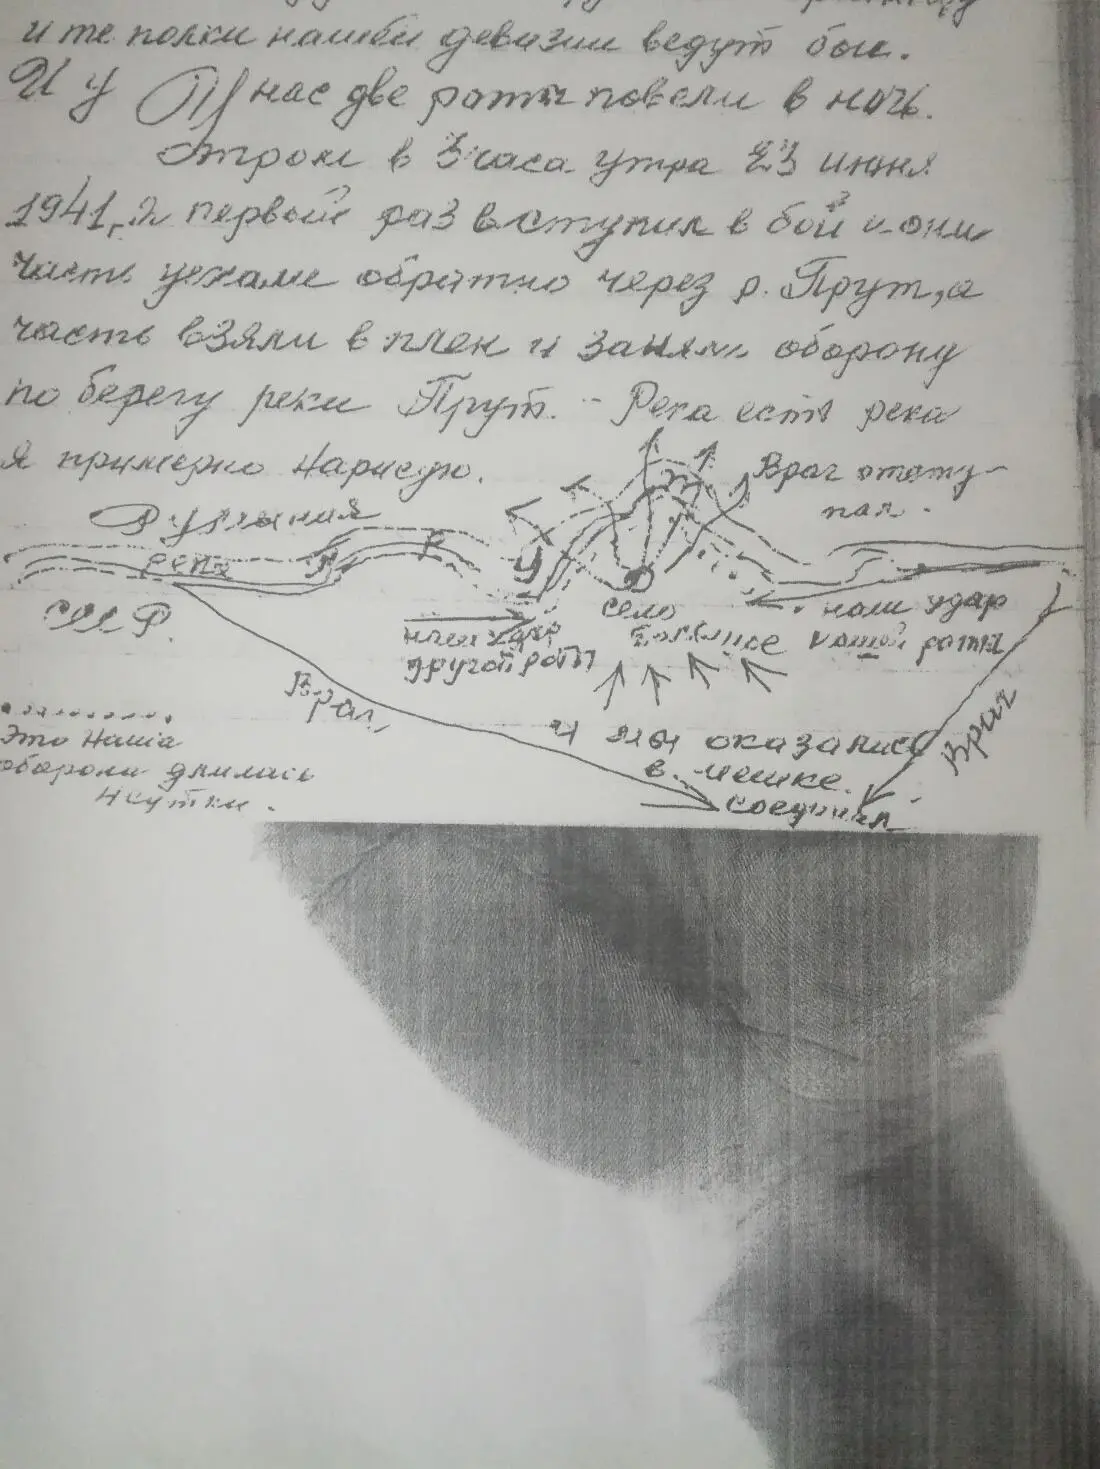 и те полки нашей девизии ведут бои.
И у нас две роты повели в ночь.
Утром в 3 часа утра 23 июня
1941 г. первый раз вступил в бой и они
часть уехали обратно через р. Прут, а
часть взяли в плен и заняли оборону
по берегу реки Прут. - Река есть река
я примерно нарисую.
Враг отсту-
пал.
Румыния
река
П
Р
У
Т
СССР.
село
наш удар
нашей роты
наш удар
другой роты
Враг
Враг
и мы оказались
в мешке.
соединил
Это наша
оборона длилась
сутки.